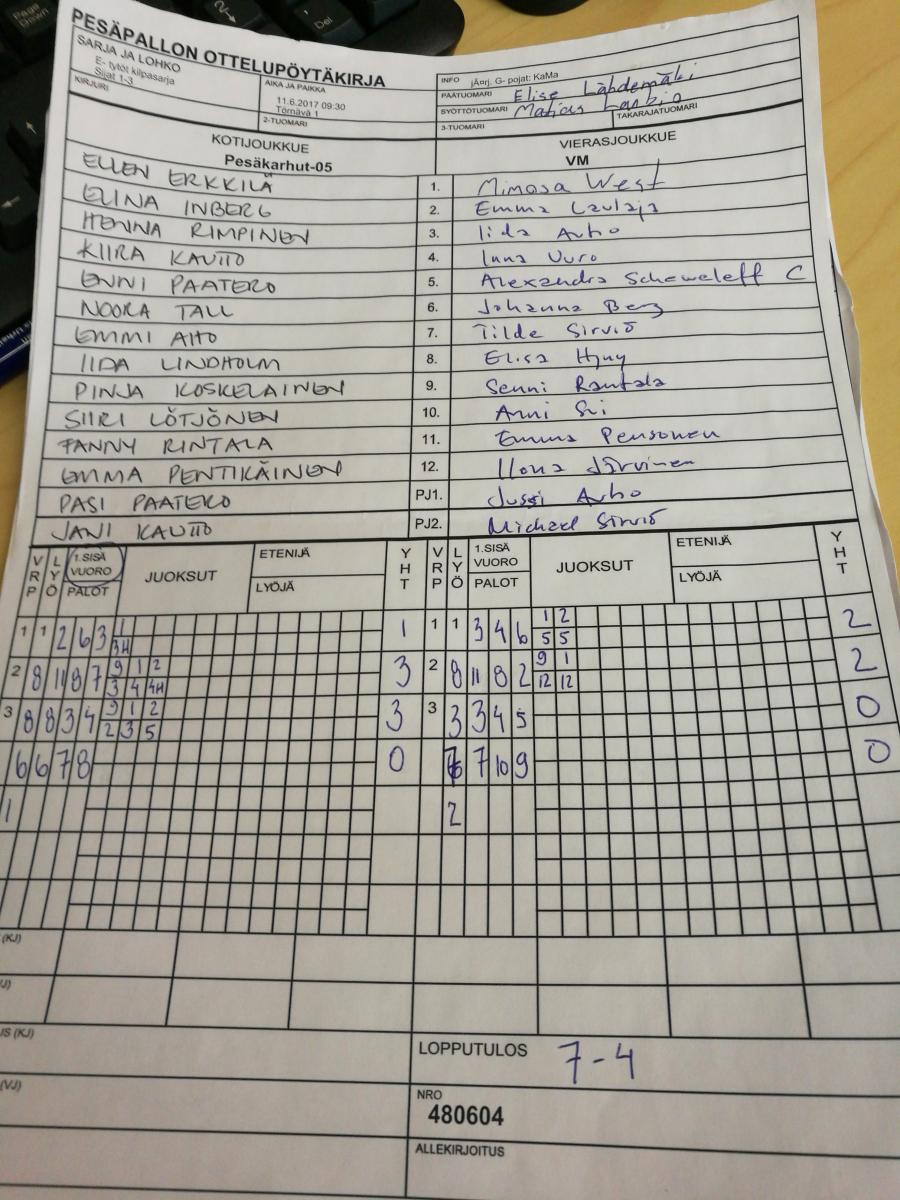 PESÄPALLON OTTELUPÖYTÄKIRJA
SARJA JA LOHKO
E- tytöt kilpasarja
Sijat 1-3
KIRJURI
AIKA JA PAIKKA
11.6.2017 09:30
Törnävä 1
2-TUOMARI
INFO jÄorj. G- pojat: KaMa
PÄÄTUOMARI Elise Lähdemäki
SYÖTTÖTUOMARI Matias
3-TUOMARI TAKARAJATUOMARI
KOTIJOUKKUE VIERASJOUKKUE
Pesäkarhut-05 VM
ELLEN ERKKILÄ 1. Mimosa West
ELINA INBERG 2. Emma Laulaja
HENNA RIMPINEN 3. Iida Avho
KIIRA KAUTTO 4. Inna Vuro
ENNI PAATERO 5. Alexandra Scheweleff C
NOORA TALL 6. Johanna Berg
EMMI AHO 7. Tilde Sirviö
IIDA LINDHOLM 8. Elisa
PINJA KOSKELAINEN 9. Senni Rantala
SIIRI LÖTJÖNEN 10. Anni
FANNY RINTALA 11. Emma Pensonen
EMMA PENTIKÄINEN 12. Ilona Järvinen
PASI PAATERO PJ1. Jussi Avho
JANI KAUTTO PJ2. Michael Sirviö
VRP LYÖ 1.SISÄ VUORO PALOT JUOKSUT ETENIJÄ LYÖJÄ YHT VRP LYÖ 1.SISÄ VUORO PALOT JUOKSUT ETENIJÄ LYÖJÄ YHT
1 1 2 6 3 1 1 1 1 3 4 6 1 2 2
3H 5 5
2 8 11 8 7 9 1 2 3 2 8 11 8 2 9 1 2
3 4 4H 12 12
3 8 8 3 4 9 1 2 3 3 3 3 4 5 0
2 3 5
6 6 7 8 0 7 10 9 0
1 2
(KJ)
JS (KJ)
(VJ)
LOPPUTULOS 7-4
NRO
480604
ALLEKIRJOITUS